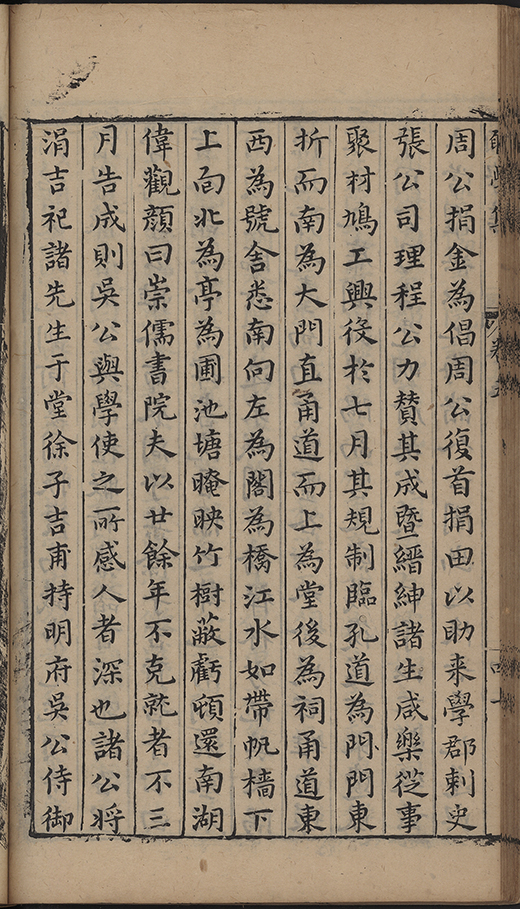 周公捐金為倡周公復首捐田以助来學郡刺史
張公司理程公力賛其成暨縉紳諸生咸樂従事
聚材鳩工興役於七月其規制臨孔道為門門東
折而南為大門直甬道而上為堂後為祠甬道東
西為號舍悉南向左為閣為橋江水如帶帆檣下
上向北為亭為圃池塘晻映竹樹蔽虧頓還南湖
偉觀顔曰崇儒書院夫以廿餘年不克就者不三
月告成則吳公與學使之所感人者深也諸公將
涓吉祀諸先生于堂徐子吉甫持明府吳公侍御